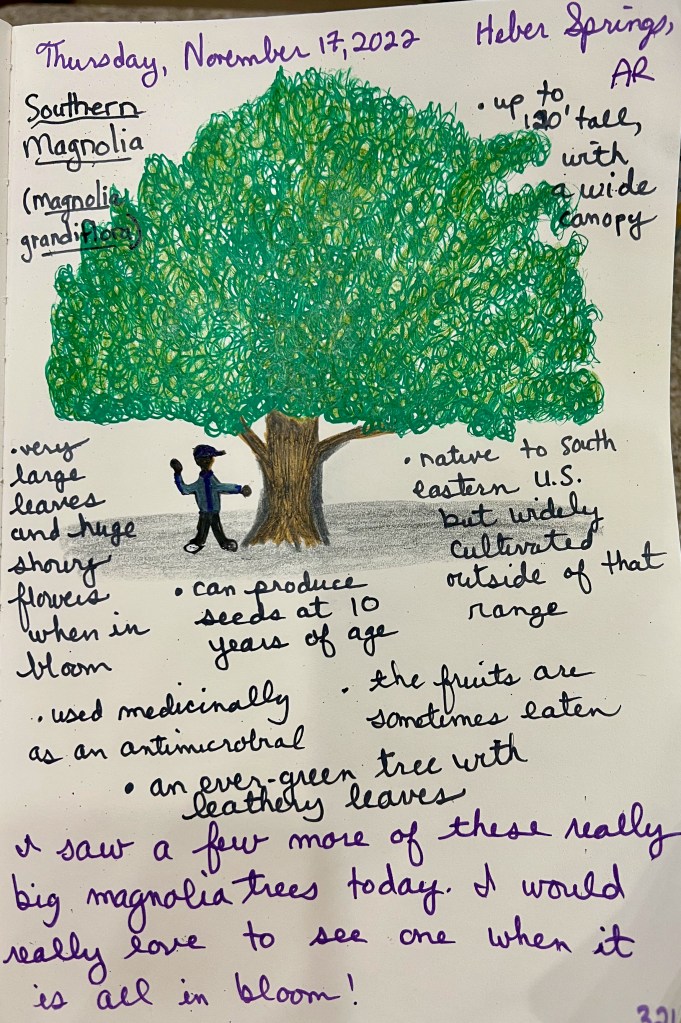 Thursday, November 17, 2022
Heber Springs,
AR
Southern
Magnolia
(magnolia
grandiflora)
• up to
120' tall,
with
a wide
canopy
• very
large
leaves
and huge
showy
flowers
when in
bloom
• native to south
eastern U.S.
but widely
cultivated
outside of that
range
• can produce
seeds at 10
years of age
• used medicinally
as an antimicrobial
• the fruits are
sometimes eaten
• an ever-green tree with
leathery leaves
I saw a few more of these really
big magnolia trees today. I would
really love to see one when it
is all in bloom!